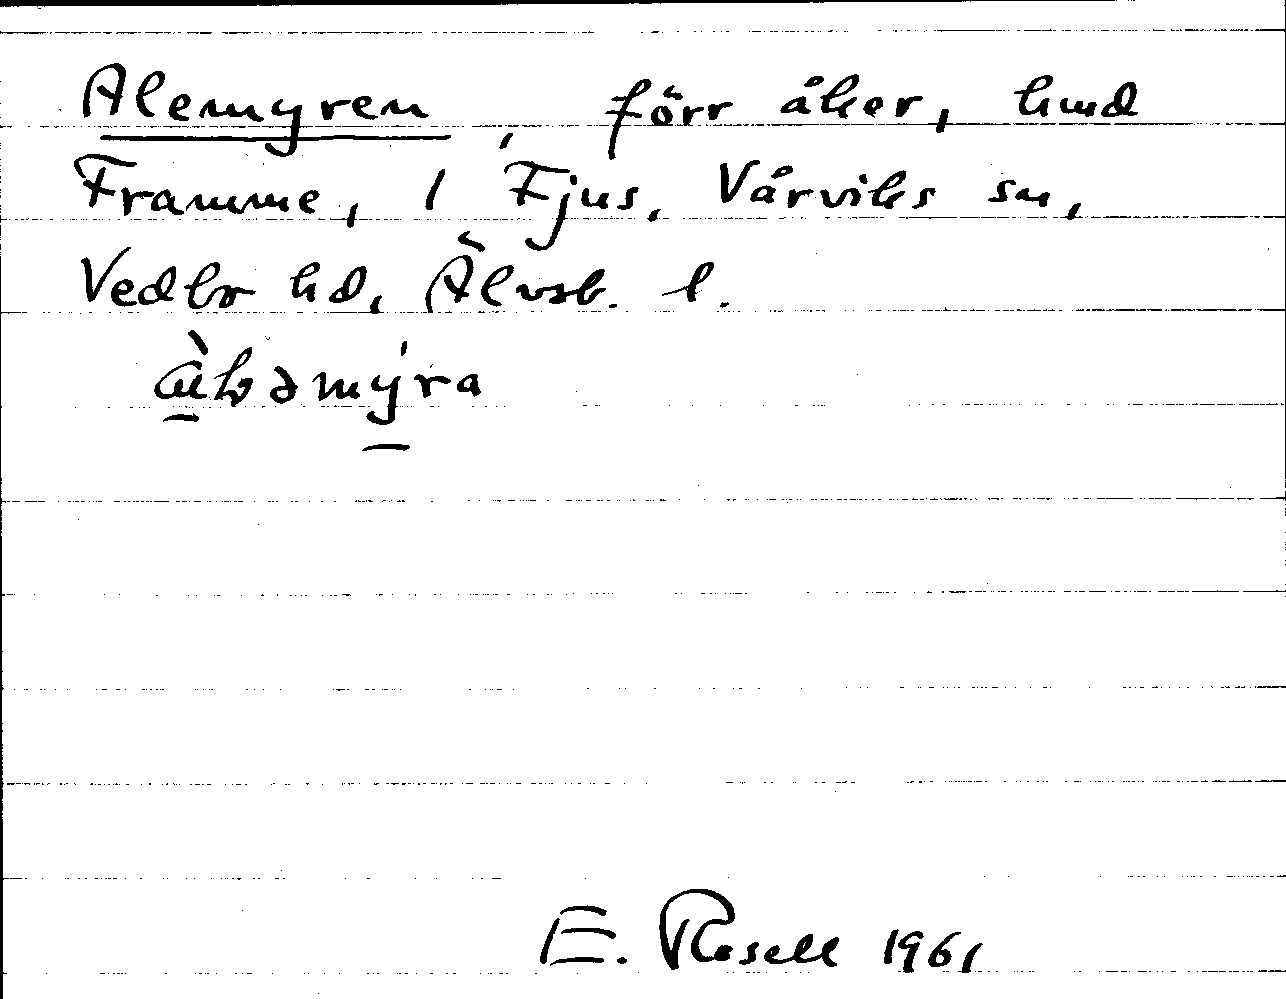 Alemyren, förr åker, hmd
Framme, 1 Fjus, Vårviks sn,
Vedbo hd, Älvsb. l.
E. Rosell 1961